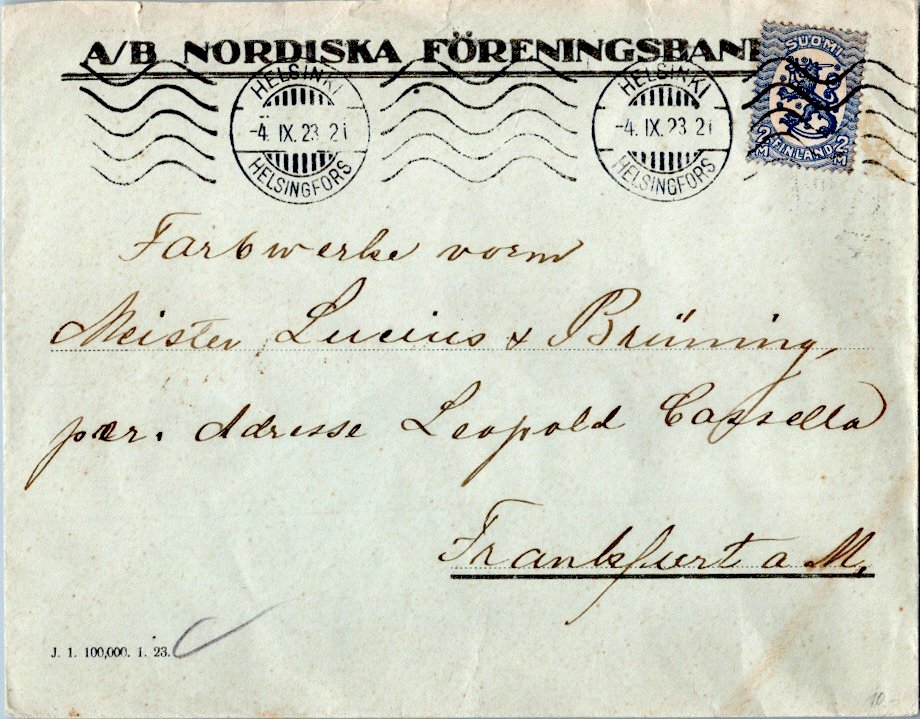 A/B NORDISKA FÖRENINGSBAN
SUOMI
2 M FINLAND 2 M
HELSINKI
-4. IX. 23 21
HELSINGFORS
HELSINKI
-4. IX. 23 21
HELSINGFORS
Farbwerke vorm
Meister Lucius & Brüning,
per. Adresse Leopold Cassella
Frankfurt a M.
J. 1. 100,000. 1. 23.
10.-